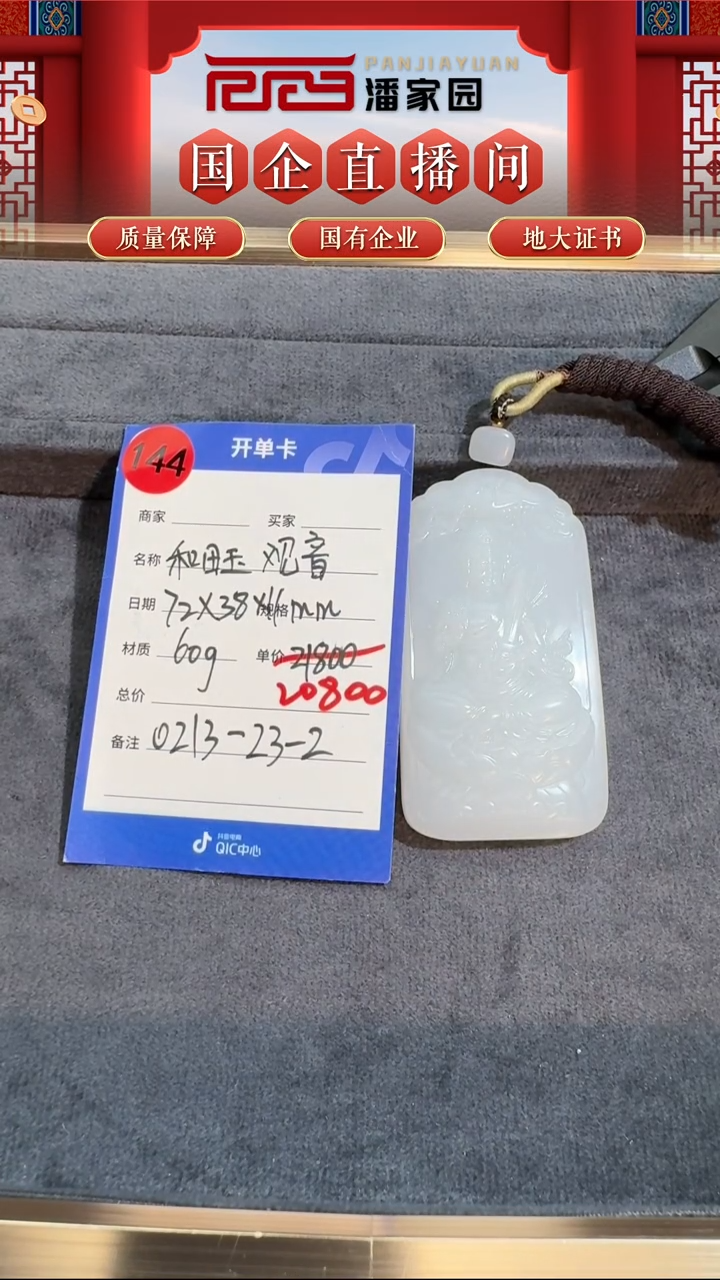 PANJIAYUAN
潘家园
国企直播间
质量保障 国有企业 地大证书
144 开单卡
商家 买家
名称 和田玉 观音
日期 72X38X16mm
材质 60g 单价 21800
20800
总价
备注 0213-23-2
抖音电商
QIC中心